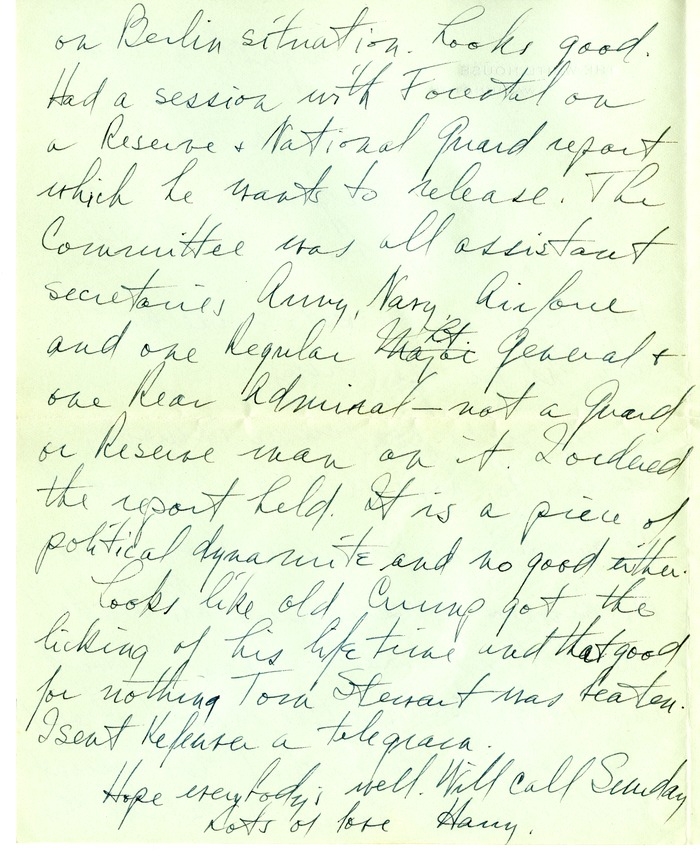 on Berlin situation. Looks good.
Had a session with Forestal on
a Reserve + National Guard report
which he wants to release. The
Committee was all assistant
secretaries Army, Navy, Airforce
and one Regular Major Lt General +
one Rear Admiral – not a Guard
or Reserve man on it. I ordered
the report held. It is a piece of
political dynamite and no good either.
Looks like old Crump got the
licking of his lifetime and that good
for nothing Tom Stewart was beaten.
I sent Kefauver a telegram.
Hope everybody's well. Will call Sunday
Lots of love Harry.